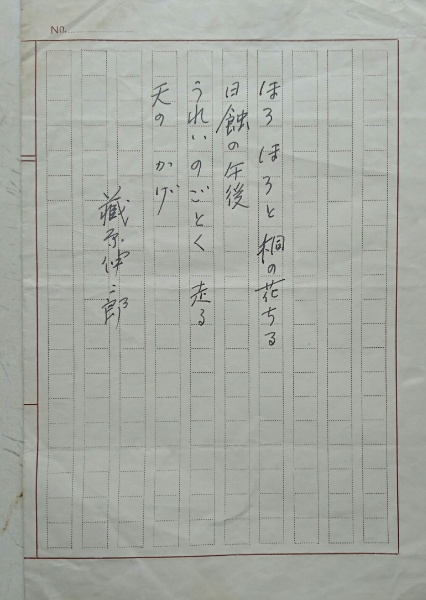 No.
ほろ ほろと 桐の花ちる
日蝕の午後
うれいのごとく 走る
天の かげ
蔵原伸二郎